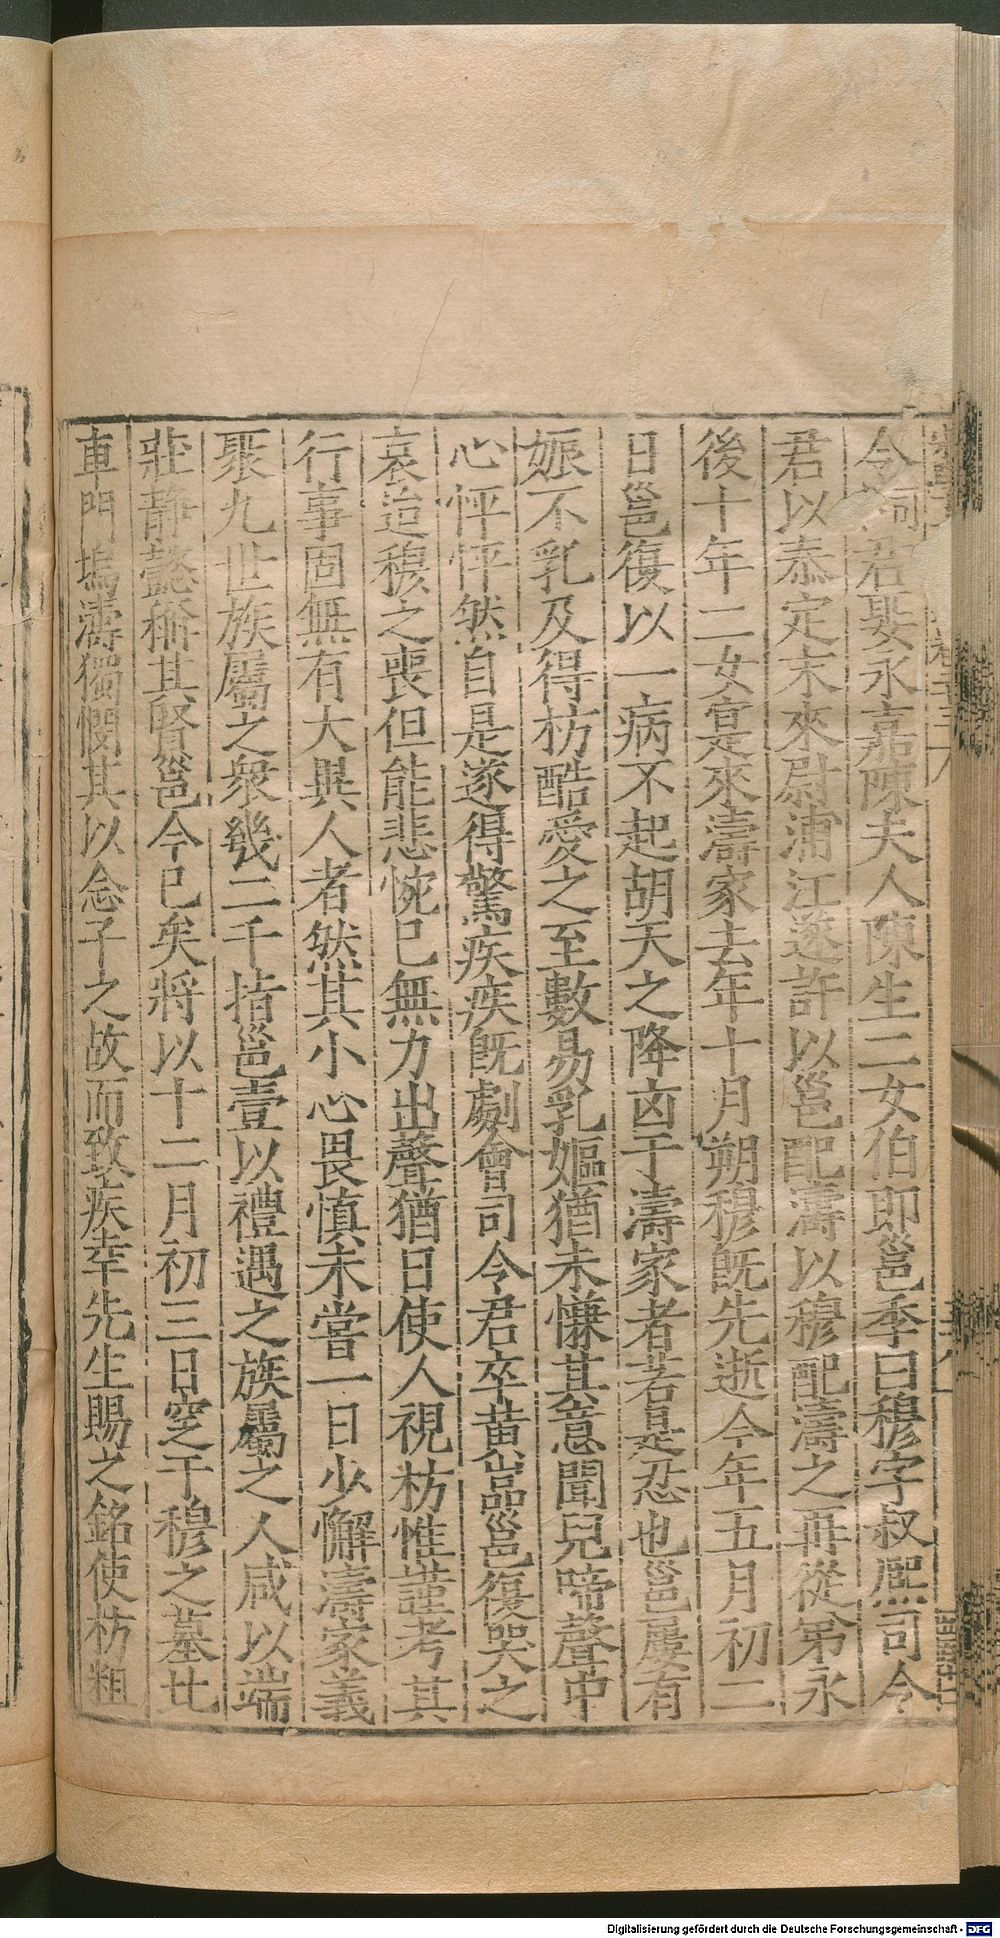 令祠君娶永嘉陳夫人陳生二女伯即邕季曰穆字叔熙司令
君以泰定末來尉浦江遂許以邕配濤以穆配濤之再從弟永
後十年二女寔來濤家去年十月朔穆旣先逝今年五月初二
日邕復以一病不起胡天之降凶于濤家者若是忍也邕屢有
娠不乳及得枋酷愛之至數易乳嫗猶未慊其意聞兒啼聲中
心怦怦然自是遂得驚疾疾旣劇會司令君卒黃嵓邕復哭之
哀迨穆之喪但能悲惋已無力出聲猶日使人視枋惟謹考其
行事固無有大異人者然其小心畏慎未嘗一日少懈濤家義
聚九世族屬之衆幾二千指邕壹以禮遇之族屬之人咸以端
莊靜懿稱其賢邕今已矣將以十二月初三日窆于穆之墓比
車門塢濤獨憫其以念子之故而致疾幸先生賜之銘使枋粗
Digitalisierung gefördert durch die Deutsche Forschungsgemeinschaft - DFG